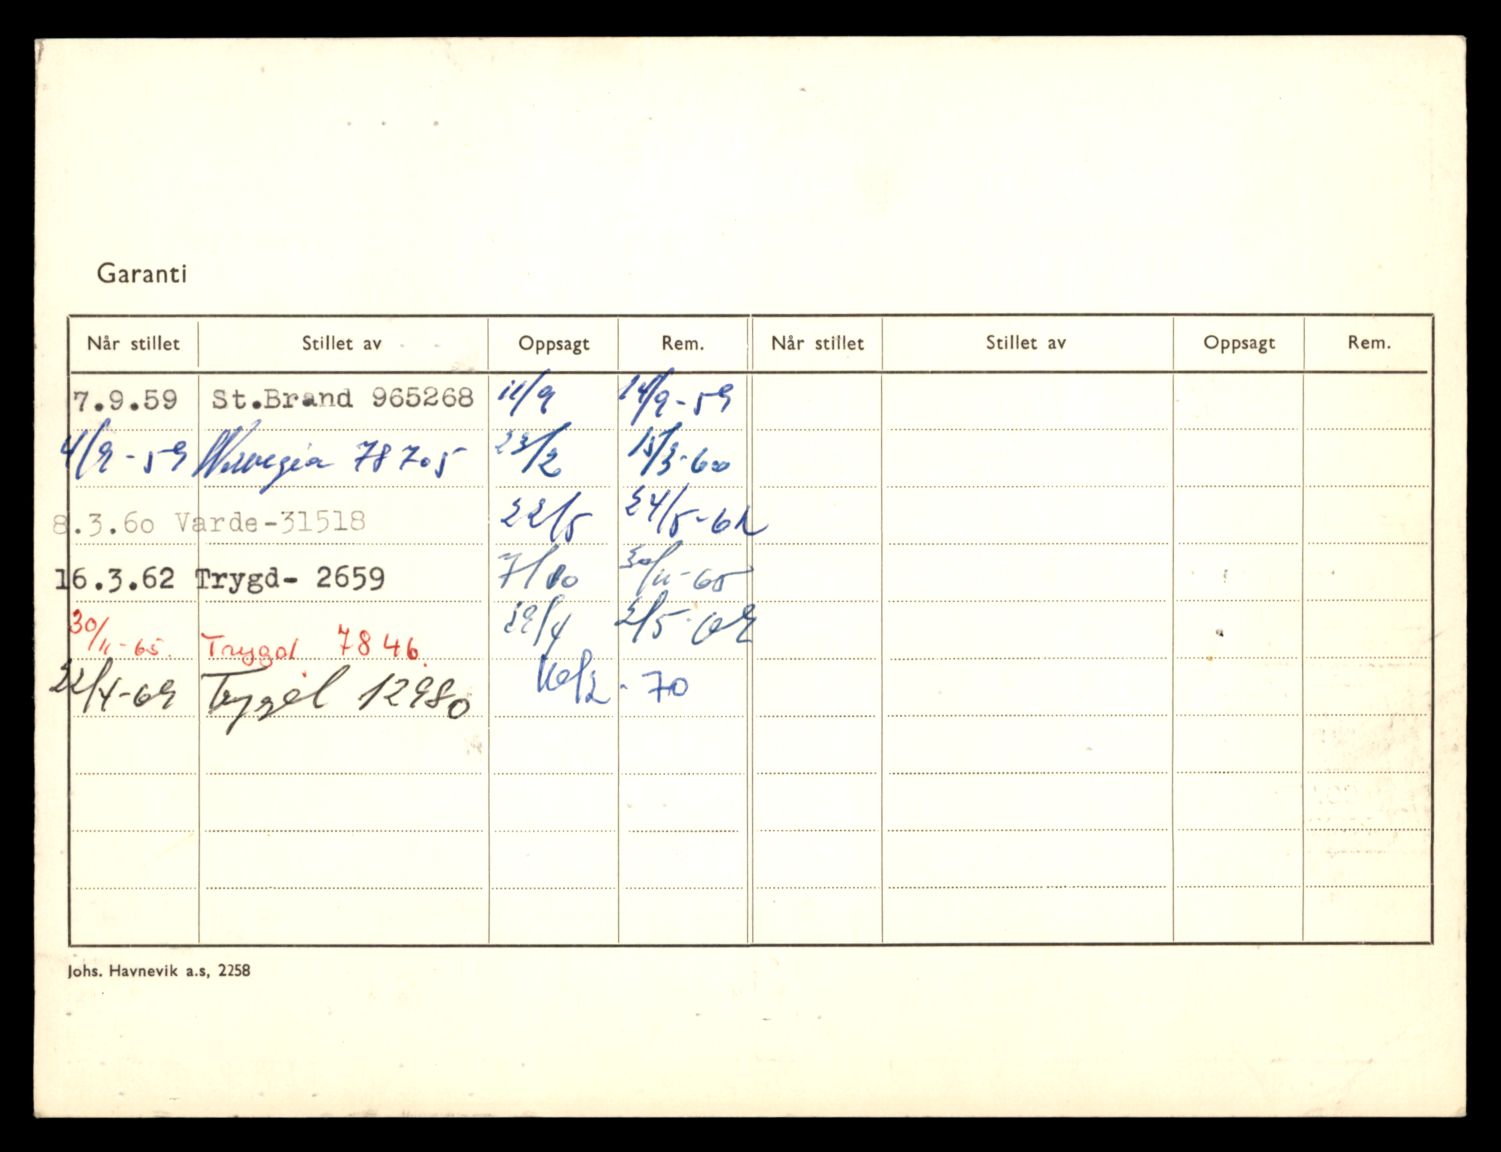 Garanti
Når stillet Stillet av Oppsagt Rem. Når stillet Stillet av Oppsagt Rem.
7.9.59 St.Brand 965268 11/9 14/9-59
4/9-59 Norvegia 78705 23/2 15/3-60
8.3.60 Varde-31518 22/5 24/5-62
16.3.62 Trygd- 2659 7/10 30/11-65
30/11-65. Trygd 7846. 29/4 2/5-69
22/4-69 Trygd 12980 16/2-70
Johs. Havnevik a.s, 2258